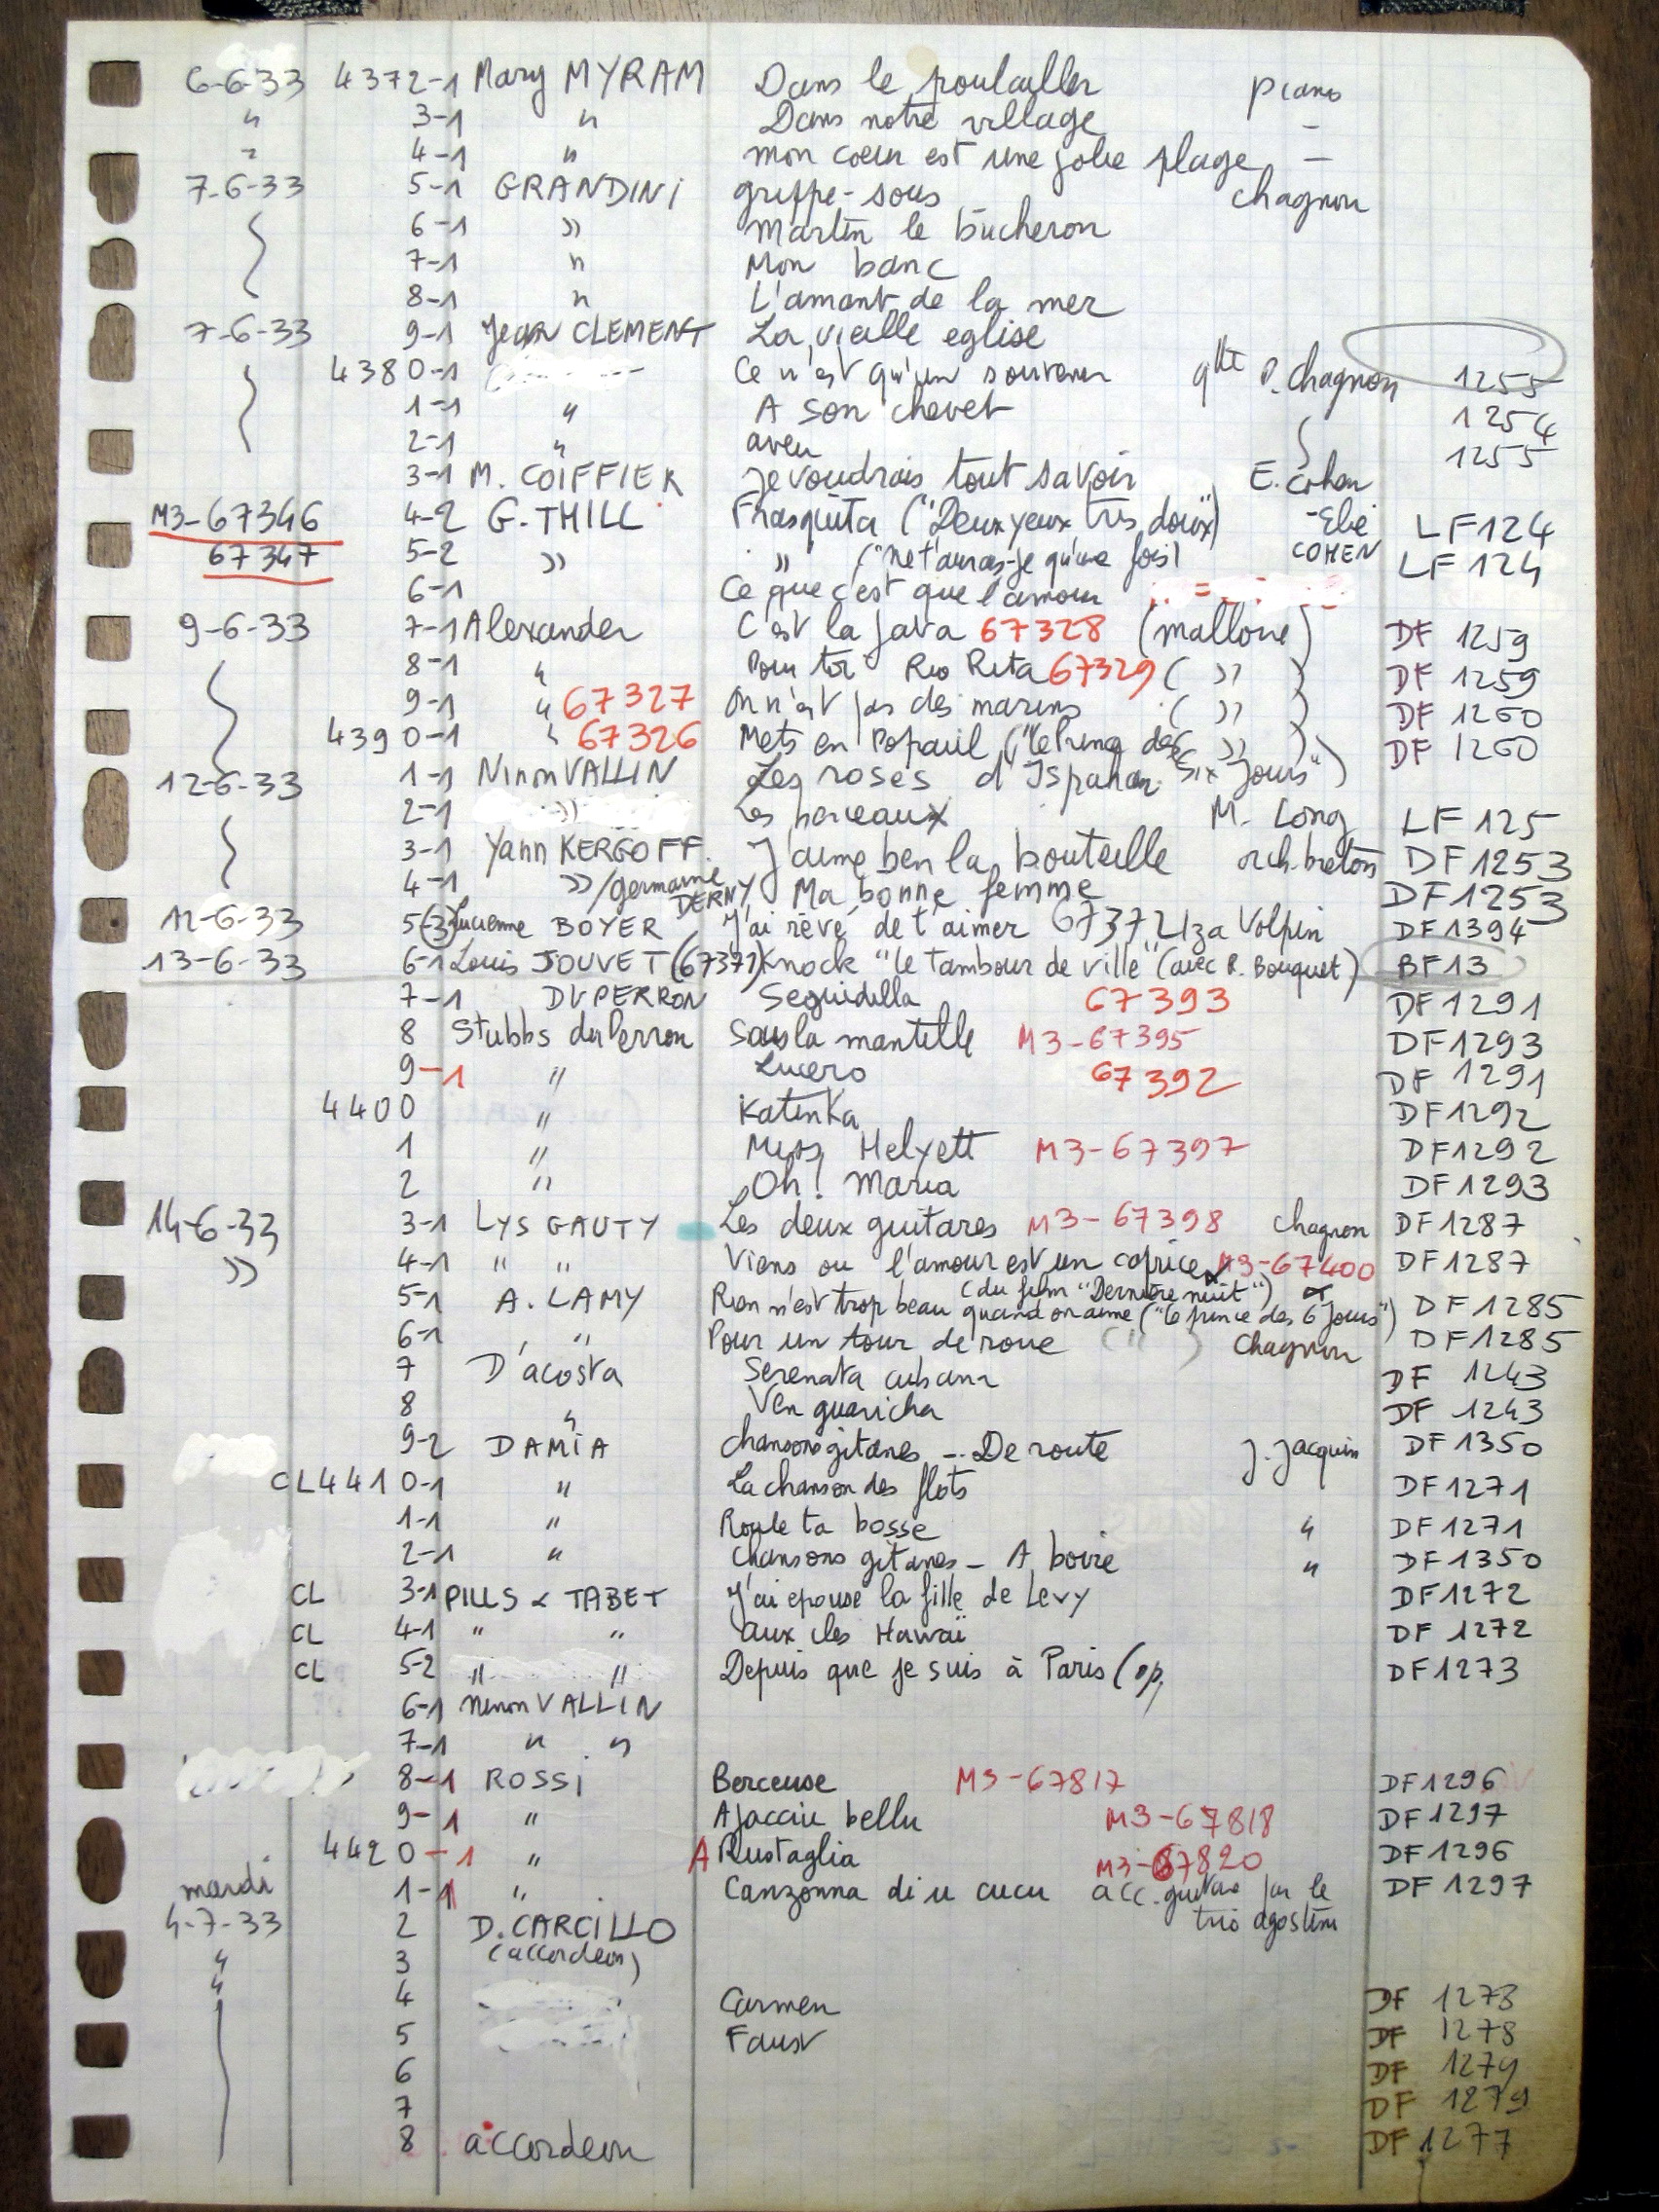 6-6-33 4372-1 Mary MYRAM Dans le poulailler piano
" 3-1 " Dans notre village –
" 4-1 " mon coeur est une jolie plage –
7-6-33 5-1 GRANDINI grippe-sous chagnon
6-1 » Martin le bûcheron
7-1 " Mon banc
8-1 " L'amant de la mer
7-6-33 9-1 Jean CLEMENT La vieille eglise
4380-1 Ce n'est qu'un souvenir qtte P. Chagnon 1255
1-1 " A son chevet 1254
2-1 " aveu 1255
3-1 M. COIFFIER Je voudrais tout savoir E. Cohen
M3-67346 4-2 G. THILL Frasquita ("Deux yeux très doux") -Elie LF124
67347 5-2 » » ("Ne t'aurai-je qu'une fois) COHEN LF124
6-1 Ce que c'est que l'amour
9-6-33 7-1 Alexander C'est la java 67328 (mallone) DF 1259
8-1 " Pour toi Rio Rita 67329 ( » ) DF 1259
9-1 " 67327 On n'est pas des marins ( » ) DF 1260
4390-1 " 67326 Mets en Popaul ("le Prince des ( » ) DF 1260
12-6-33 1-1 Ninon VALLIN Les roses d'Ispahan Six Jours")
2-1 » Les berceaux M. Long LF 125
3-1 Yann KERGOFF. J'aime ben la bouteille orch. breton DF1253
4-1 »/germaine DERNY Ma bonne femme DF1253
12-6-33 5-3 Lucienne BOYER J'ai rêvé de t'aimer 67372 Iza Volpin DF1394
13-6-33 6-1 Louis JOUVET (67371) Knock "le tambour de ville" (avec R. Bouquet) BF13
7-1 DUPERRON Seguidilla 67393 DF1291
8 Stubbs du Perron Sous la mantille M3-67395 DF1293
9-1 " Lucero 67392 DF 1291
4400 " Katinka DF1292
1 " Miss Helyett M3-67397 DF1292
2 " Oh! Maria DF1293
14-6-33 3-1 LYS GAUTY Les deux guitares M3-67398 chagnon DF1287
» 4-1 " " Viens ou l'amour est un caprice M3-67400 DF1287
(du film "Dernière nuit")
5-1 A. LAMY Rien n'est trop beau quand on aime ("le prince des 6 Jours") DF1285
6-1 " " Pour un tour de roue ( " ) Chagnon DF1285
7 D'acosta Serenata cubana DF 1243
8 " Ven guaricha DF 1243
9-2 DAMIA chansons gitanes -. De route J. Jacquin DF1350
CL4410-1 " La chanson des flots DF1271
1-1 " Roule ta bosse " DF1271
2-1 " Chansons gitanes – A boire " DF1350
CL 3-1 PILLS & TABET J'ai epousé la fille de Levy DF1272
CL 4-1 " " aux iles Hawaï DF 1272
CL 5-2 " " Depuis que je suis à Paris (op, DF1273
6-1 Ninon VALLIN
7-1 " "
8-1 ROSSI Berceuse M3-67817 DF1296
9-1 " Ajacciu bellu M3-67818 DF1297
4420-1 " A Rustaglia M3-67820 DF1296
mardi 1-1 " Canzonna di u cucu acc. guitare par le DF1297
4-7-33 2 D. CARCILLO trio agostini
" 3 (accordeon)
" 4 Carmen DF 1278
5 Faust DF 1278
6 DF 1279
7 DF 1279
8 accordeon DF 1277